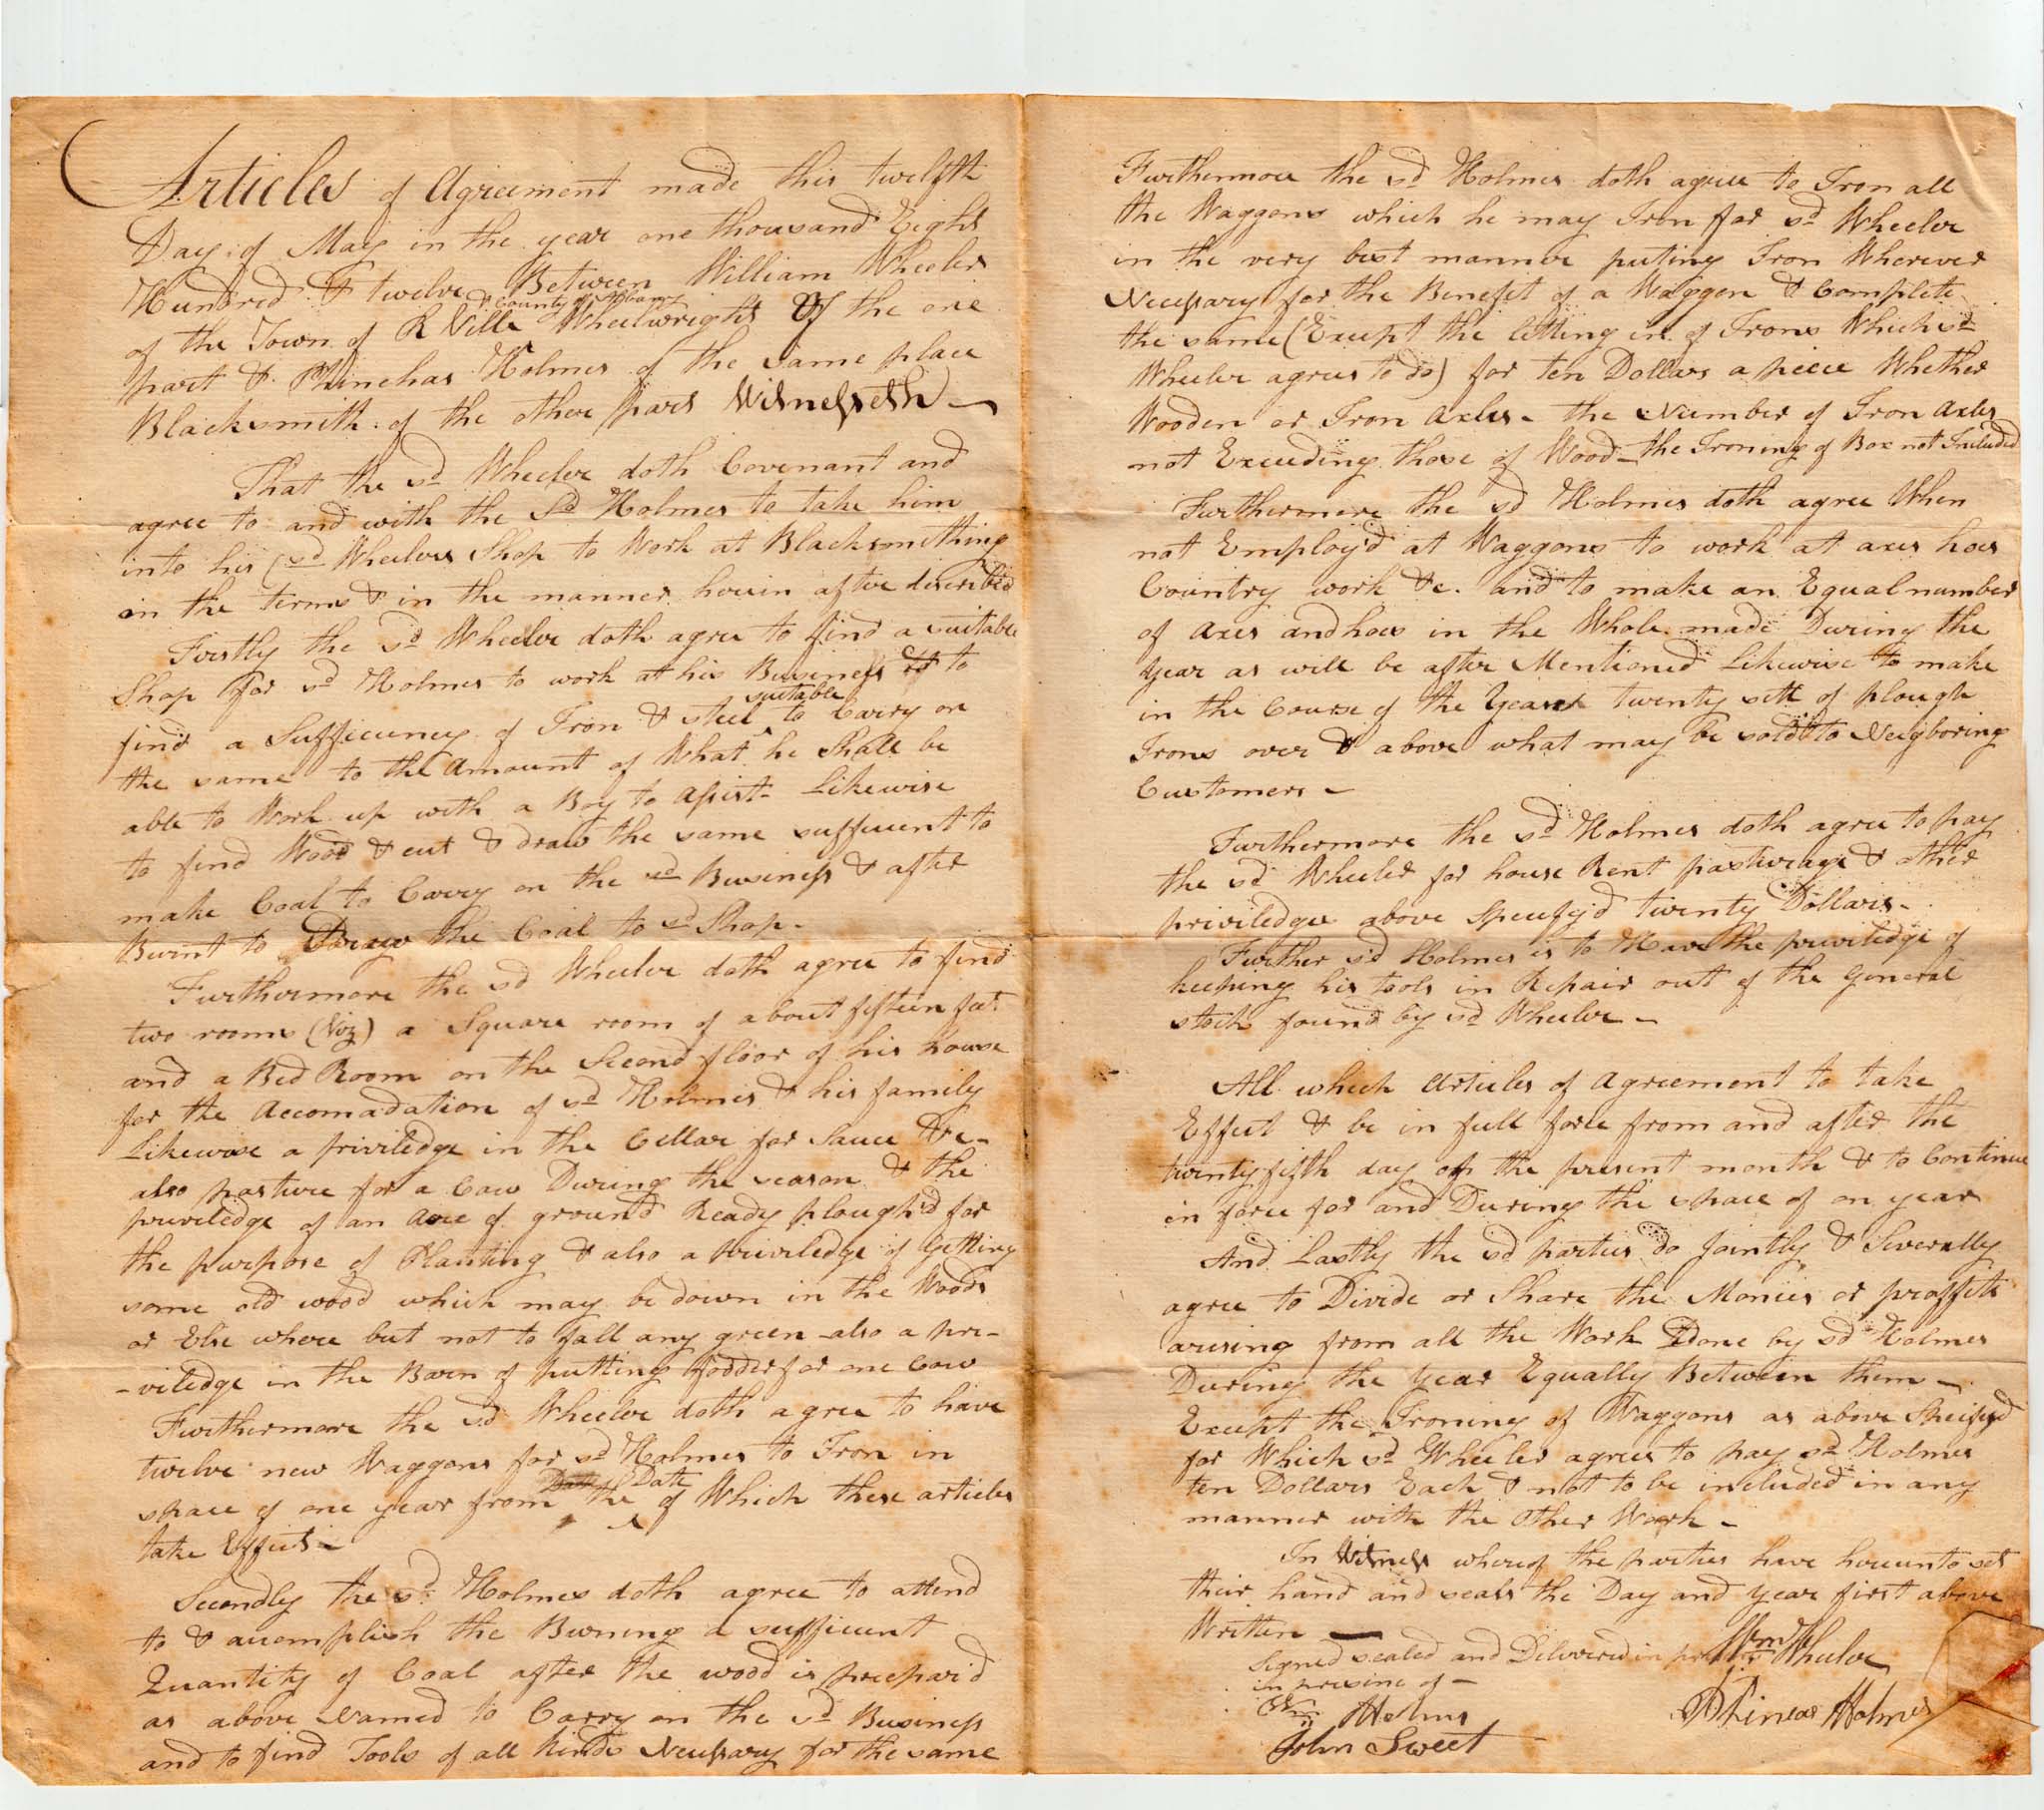 Articles of Agreement made this twelfth
Day of May in the year one thousand Eight
Hundred & twelve Between William Wheeler
& County of Albany
of the Town of R Ville Wheelwright Of the one
part & Phinehas Holmes of the same place
Blacksmith of the other part Witnesseth —
That the sd Wheeler doth Covenant and
agree to and with the Sd Holmes to take him
into his (sd Wheelers Shop to Work at Blacksmithing
on the terms & in the manner herein after described
Firstly the sd Wheeler doth agree to find a suitable
Shop for sd Holmes to work at his Business to
suitable
find a Sufficiency of Iron & steel to Carry on
the same to the Amount of What he Shall be
able to Work up with a Boy to Assist - Likewise
to find Wood & cut & draw the same sufficient to
make Coal to Carry on the sd Business & after
Burnt to Draw the Coal to sd Shop -
Furthermore the sd Wheeler doth agree to find
two rooms (Viz) a Square room of about fifteen feet
and a Bed Room on the Second floor of his house
for the Accomadation of sd Holmes & his family
Likewise a priviledge in the Cellar for Sauce &c -
also pasture for a Cow During the season & the
priviledge of an Acre of ground Ready plough'd for
the purpose of Planting & also a priviledge of Getting
some old wood which may be down in the Woods
or Else where but not to fall any green - also a pri-
-viledge in the Barn of putting fodder for one Cow
Furthermore the sd Wheeler doth agree to have
twelve new Waggons for sd Holmes to Iron in
Date
space of one year from the of Which these articles
take Effect -
Secondly the sd Holmes doth agree to attend
to & accomplish the Burning a sufficient
Quantity of Coal after the wood is preepair'd
as above Named to Carry on the sd Business
and to find Tools of all kinds Necessary for the same
Furthermore the sd Holmes doth agree to Iron all
the Waggons which he may Iron for sd Wheeler
in the very best manner puting Iron Wherever
Necessary for the Benefit of a Waggon & Complete
the same (Except the letting in of Irons Which sd
Wheeler agrees to do) for ten Dollars a piece Whether
Wooden or Iron Axles - the Number of Iron Axles
not Exceeding those of Wood - the Ironing of Box not Included
Furthermore the sd Holmes doth agree When
not Employ'd at Waggons to work at axes hoes
Country work &c. and to make an Equal number
of Axes and hoes in the Whole made During the
year as will be after Mentioned Likewise to make
in the Course of the Year twenty sett of plough
Irons over & above what may be sold to Neigboring
Customers -
Furthermore the sd Holmes doth agree to pay
the sd Wheeler for house Rent pasturage & other
priviledges above Specify'd twenty Dollars -
Further sd Holmes is to Have the priviledge of
keeping his tools in Repair out of the General
stock found by sd Wheeler -
All which Articles of Agreement to take
Effect & be in full force from and after the
twenty fifth day of the present month & to Continue
in force for and During the space of on year
And Lastly the sd parties do Jointly & Severally
agree to Divide or Share the Monies or proffits
arising from all the Work Done by sd Holmes
During the Year Equally Between them -
Except the Ironing of Waggons as above Specify'd
for Which sd Wheeler agrees to pay sd Holmes
ten Dollars Each & not to be included in any
manner with the Other Work -
In Witness whereof the parties have hereunto set
their hand and seals the Day and Year first above
Written —
Signed sealed and Delivered in
in presence of -
Wm Wheeler
Phineas Holmes
Holms
John Sweet